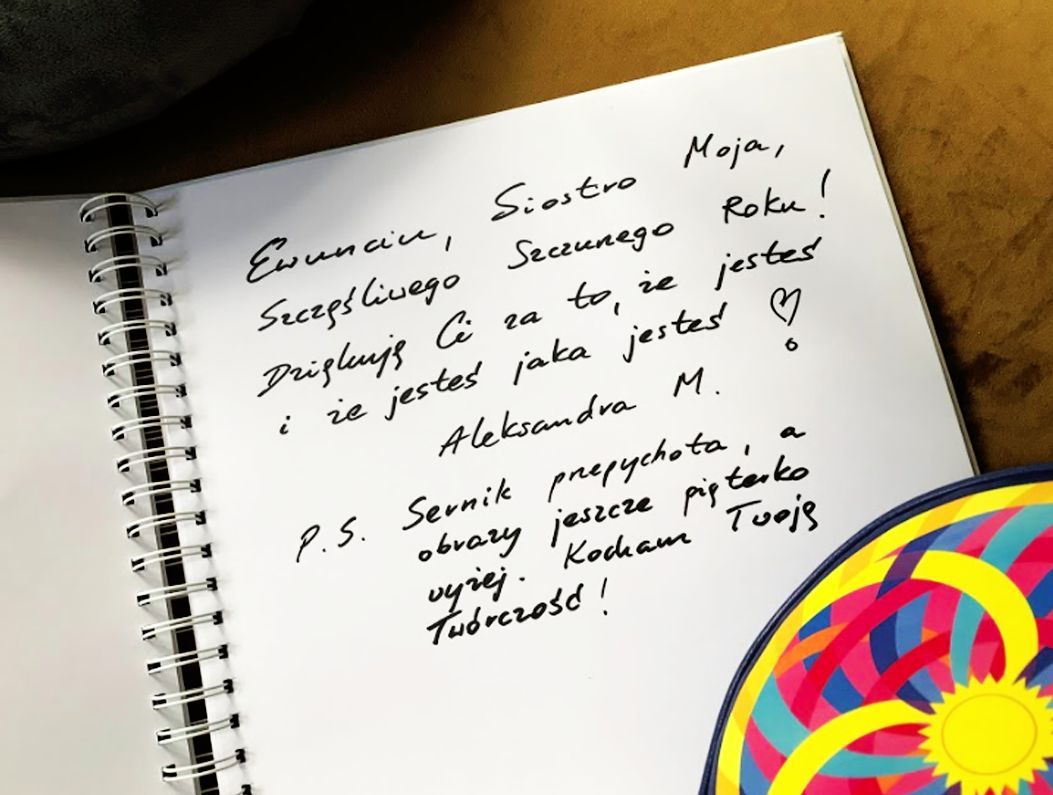 Ewunciu, Siostro Moja,
Szczęśliwego Szczunego Roku!
Dziękuję Ci za to, że jesteś
i że jesteś jaka jesteś
Aleksandra M.
P.S. Sernik przepychota, a
obrazy jeszcze pięterko
wyżej. Kocham Twoją
Twórczość!